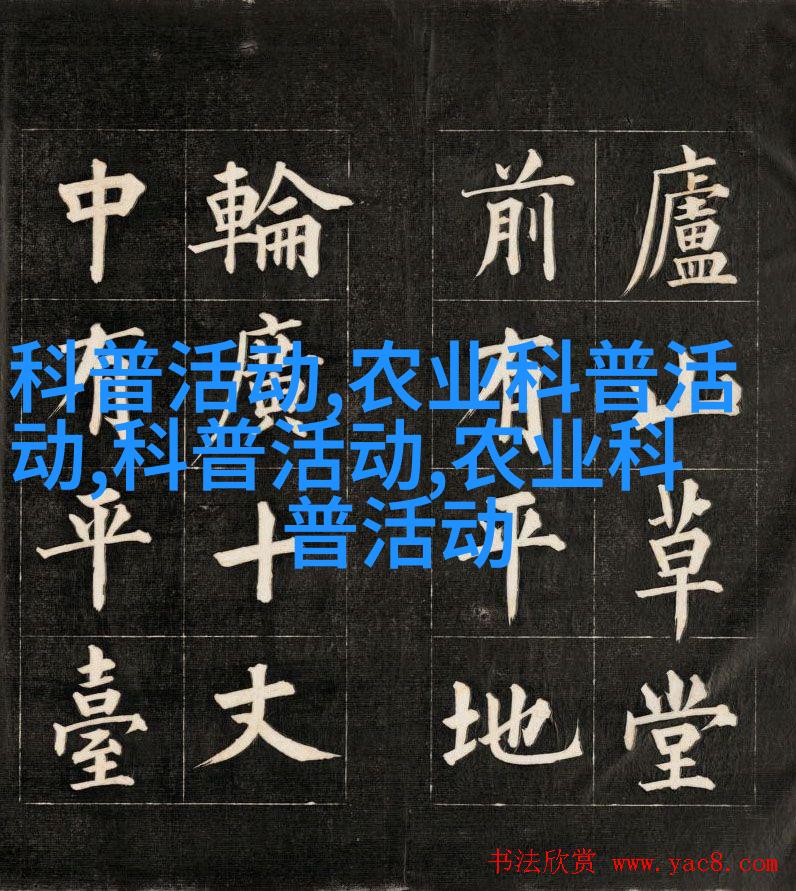 廬山草堂
前有平地
輪廣十丈
中有平臺
科普活动,农业科普活
动,科普活动,农业科
普活动
书法欣赏 www.yac8.com